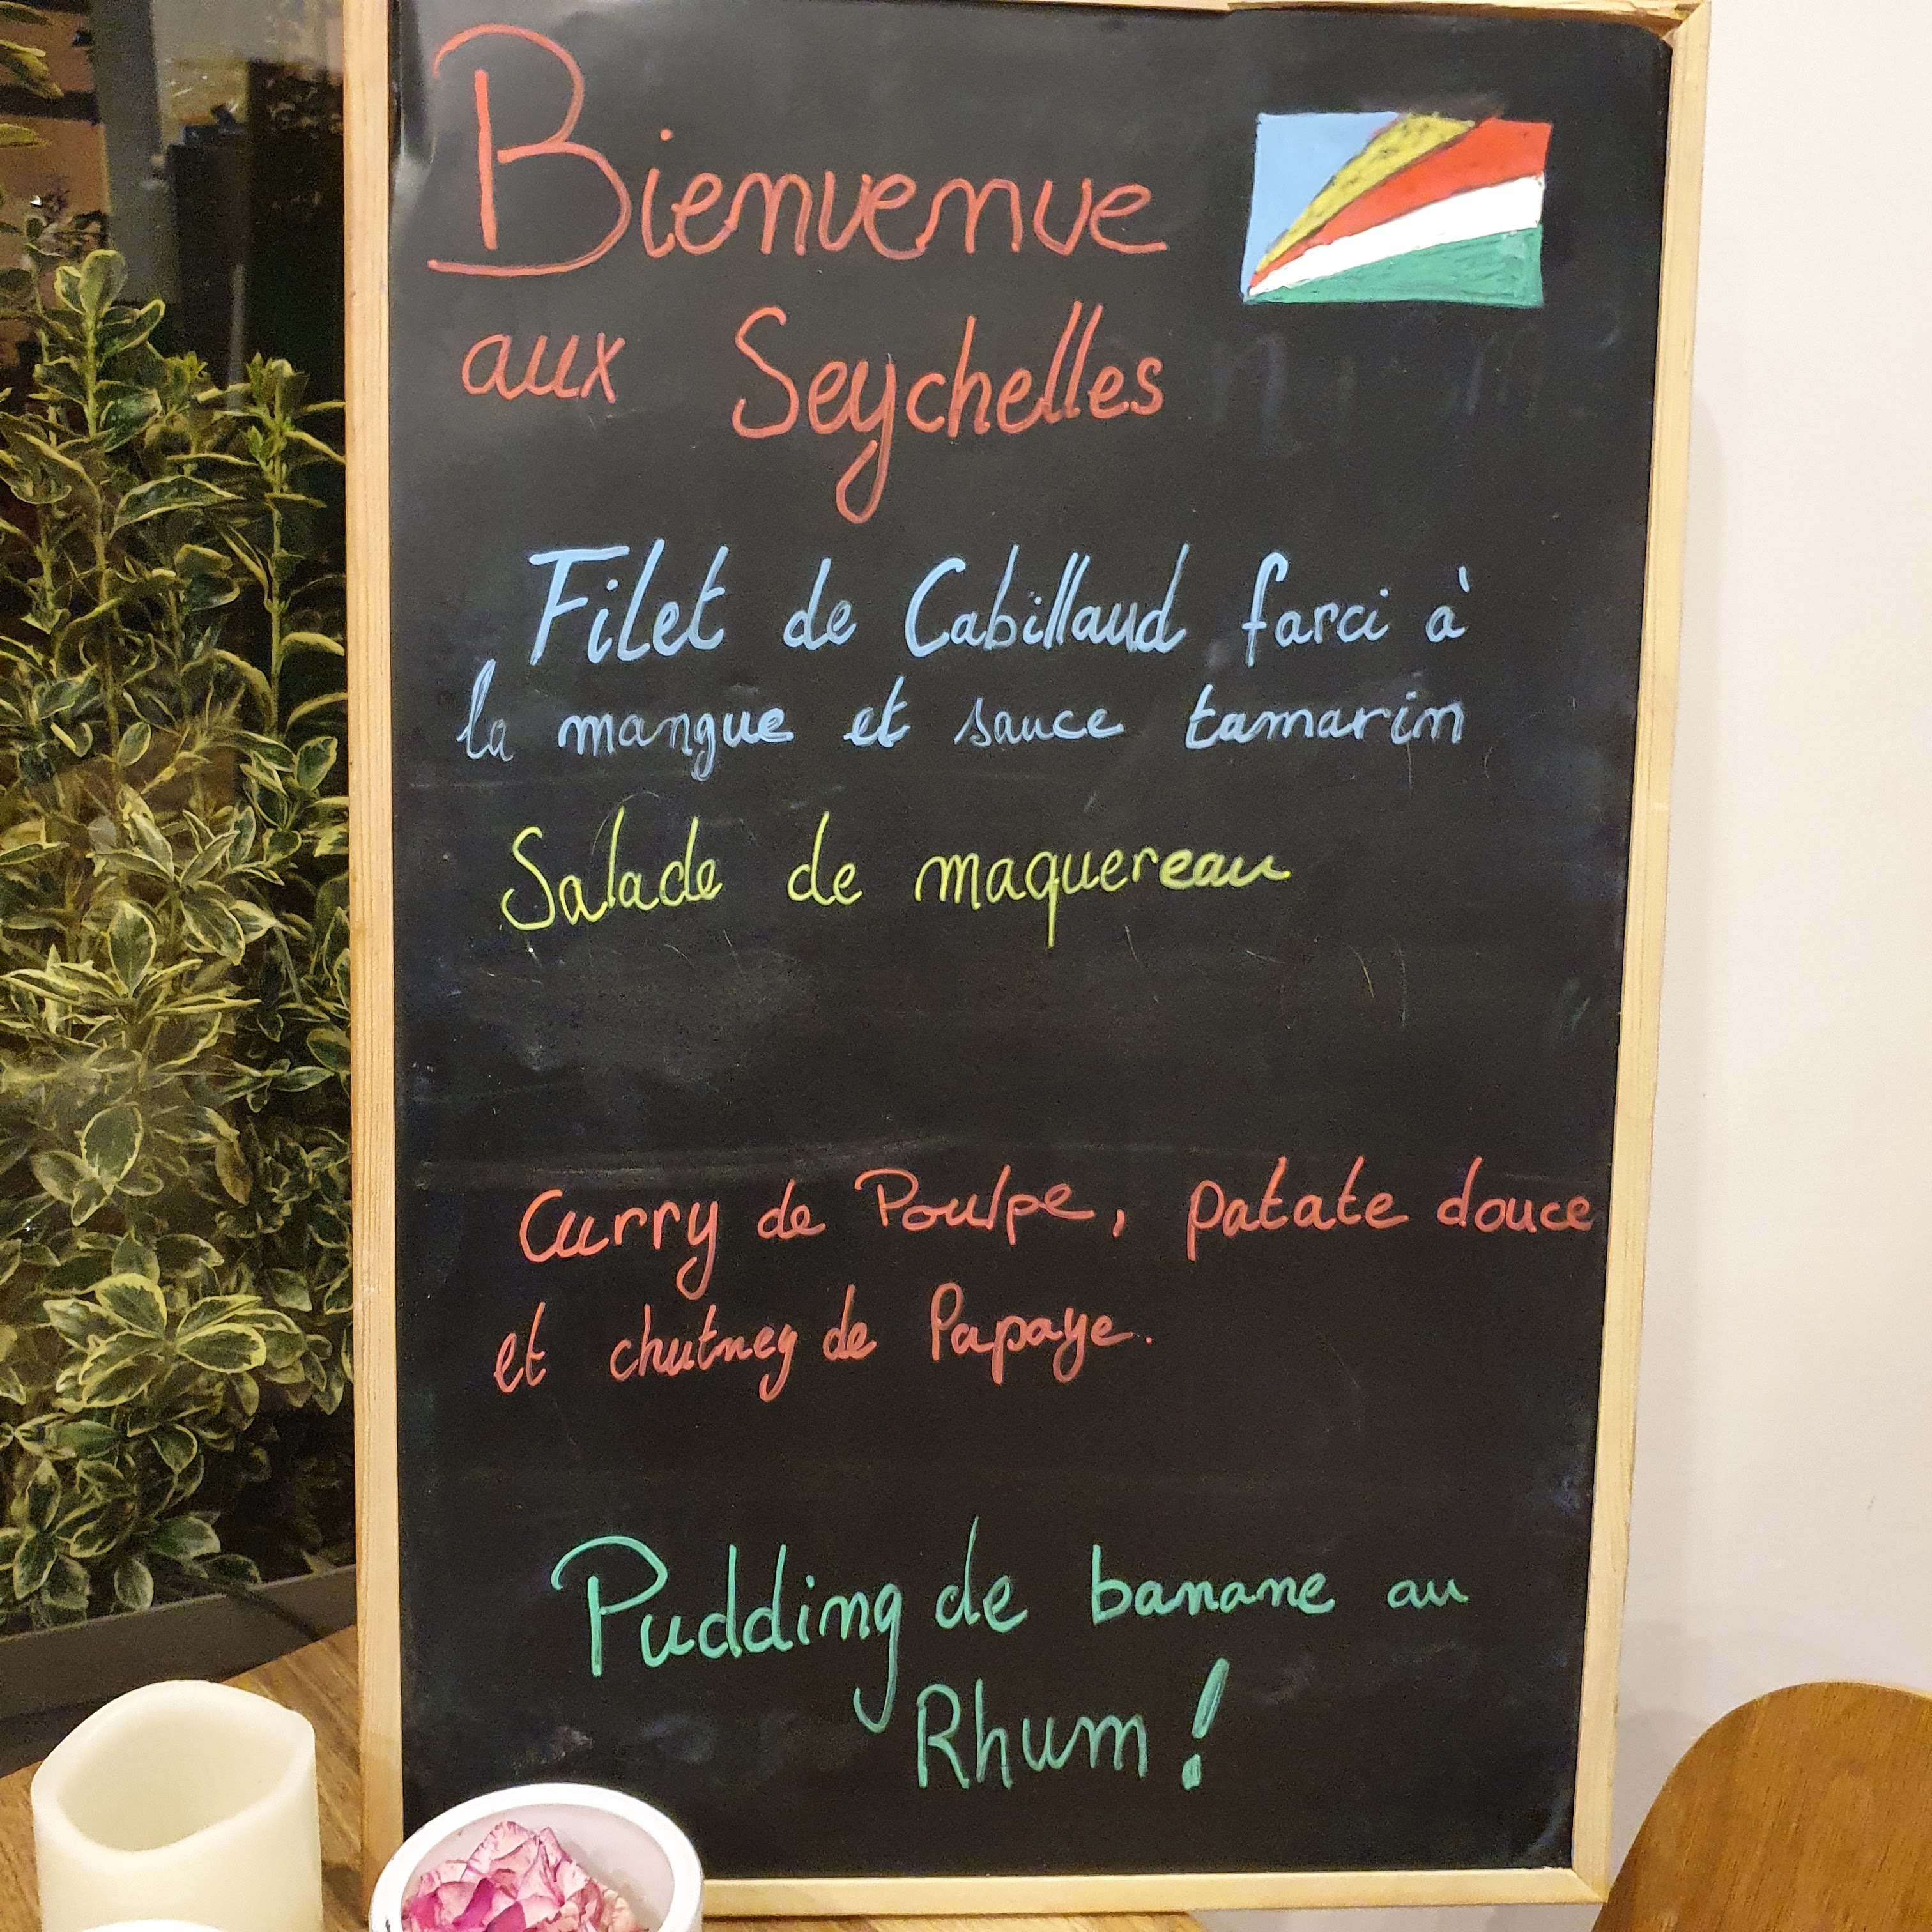 Bienvenue
aux Seychelles
Filet de Cabillaud farci à
la mangue et sauce tamarin
Salade de maquereau
Curry de Poulpe, patate douce
et chutney de Papaye.
Pudding de banane au
Rhum !